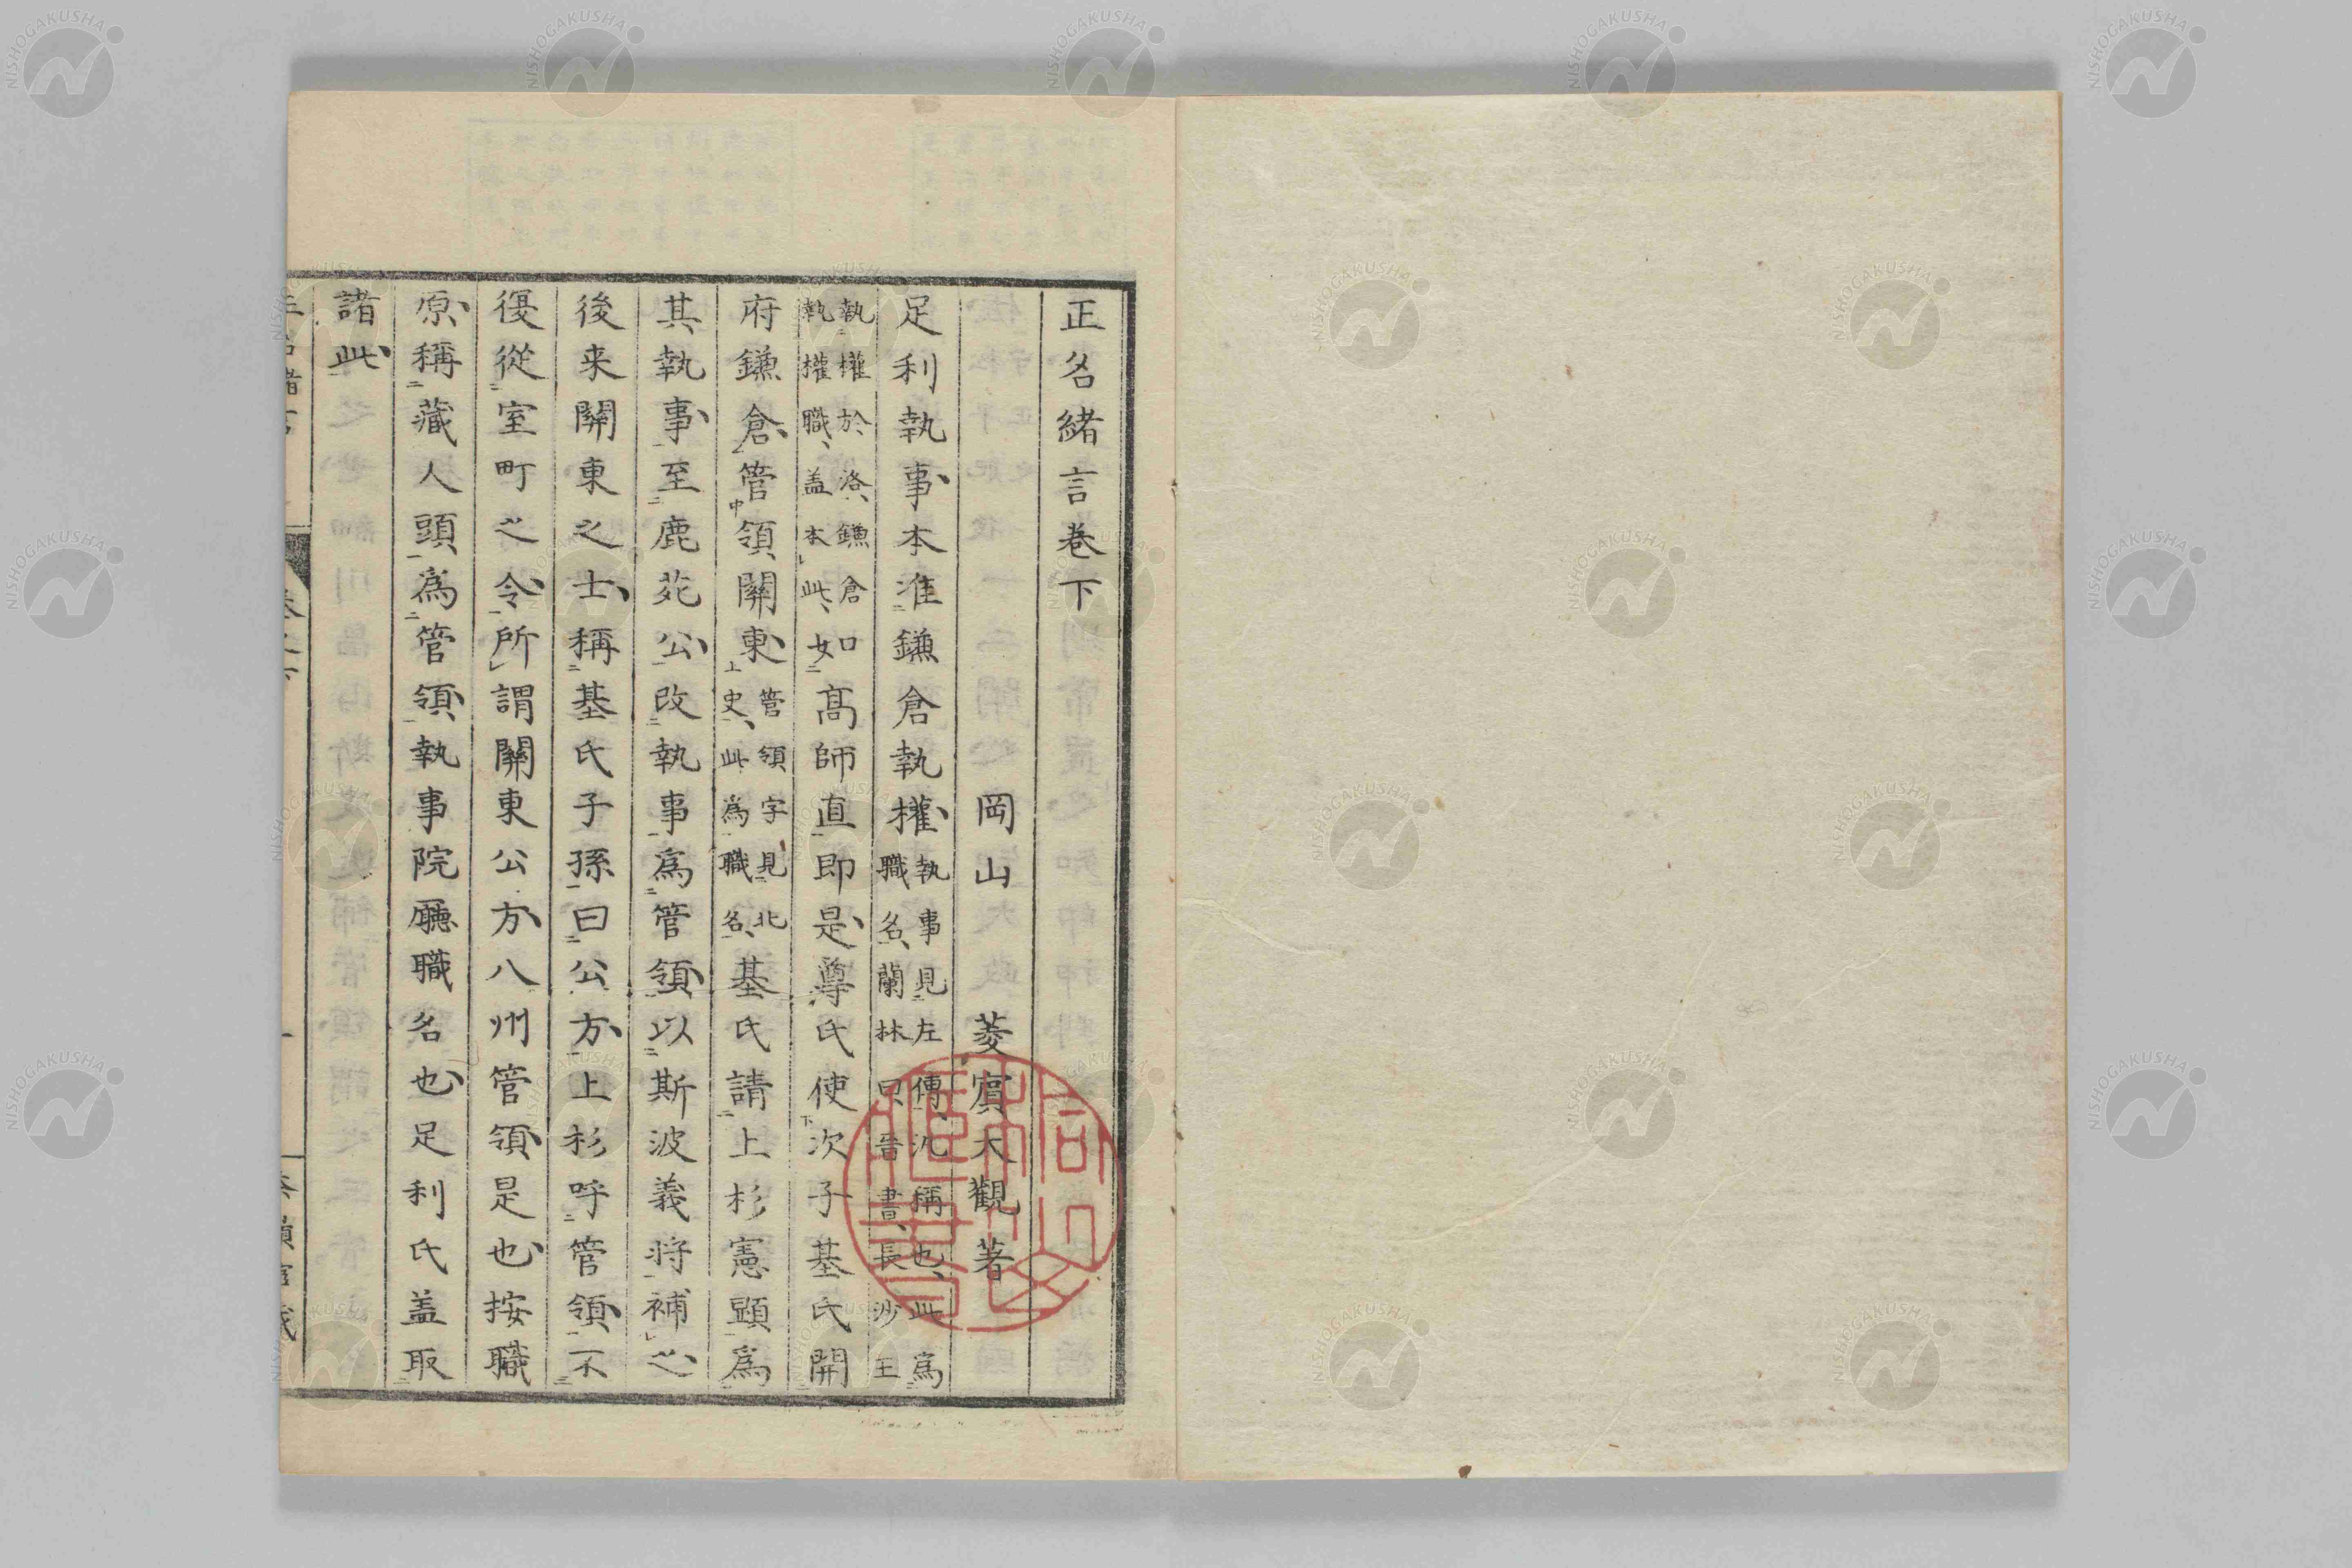 正名緒言卷下
岡山　菱賓大觀著
足利執事本准鎌倉執權執事見左傳、汎稱也、此為職名、蘭林曰、晉書、長沙王
執權於洛、鎌倉執權職、盖本此、如高師直即是、尊氏使次子基氏開
府鎌倉、管領關東管領字見北史、此為職名、基氏請上杉憲顕為
其執事至鹿苑公改執事為管領以斯波義将補之
後来關東之士稱基氏子孫曰公方上杉呼管領不
復從室町之令所謂關東公方八州管領是也按職
原稱藏人頭為管領執事院廳職名也足利氏盖取
諸此
NISHOGAKUSHA